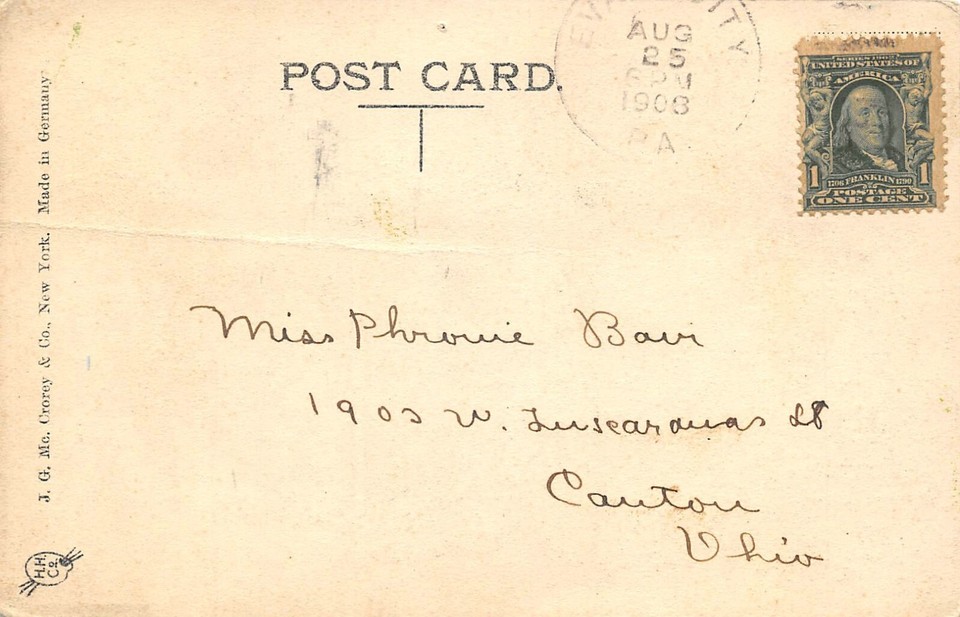 POST CARD.
EVANS CITY
AUG
25
6 PM
1908
PA
SERIES 1902
UNITED STATES OF
AMERICA
1 1
1706 FRANKLIN 1790
POSTAGE
ONE CENT
J. G. Mc. Crorey & Co., New York. Made in Germany
Miss Phronie Bair
1903 W. Tuscarawas St
Canton
Ohio
H.H.
Co.